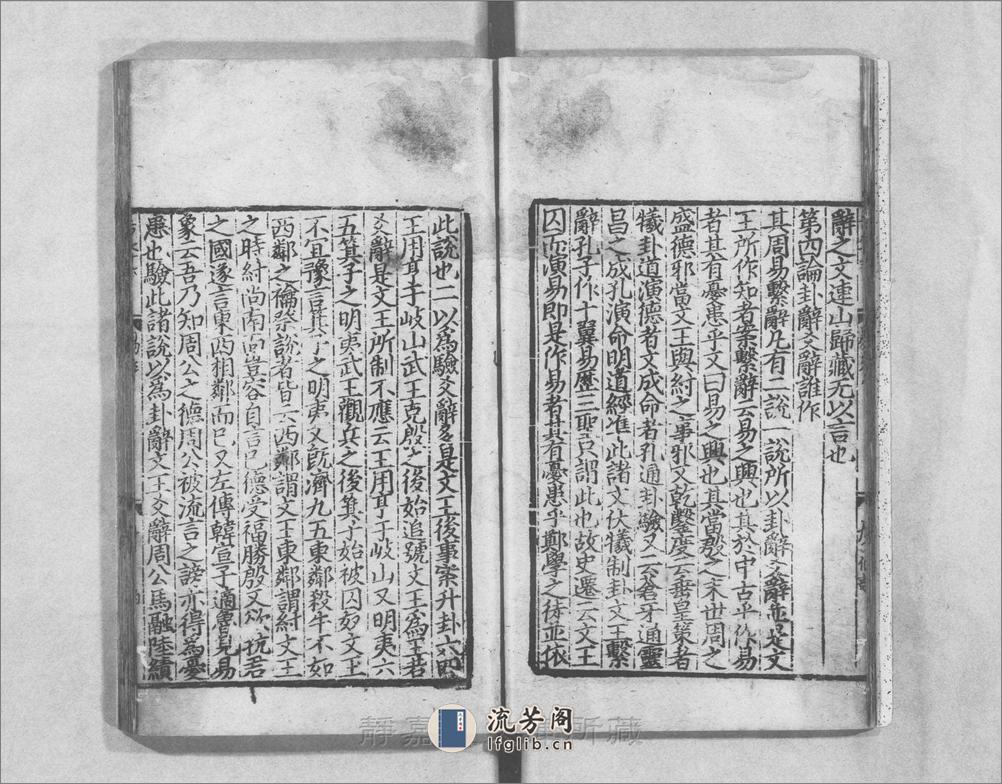 辭之文連山歸藏无以言也
第四論卦辭爻辭誰作
其周易繫辭凡有二說一說所以卦辭爻辭並是文
王所作知者案繫辭云易之興也其於中古乎作易
者其有憂患乎又曰易之興也其當殷之末世周之
盛德邪當文王與紂之事邪又乾鑿度云垂皇策者
犧卦道演德者文成命者孔通卦驗又云蒼牙通靈
昌之成孔演命明道經准此諸文伏犧制卦文王繫
辭孔子作十翼易歷三聖只謂此也故史遷云文王
囚而演易即是作易者其有憂患乎鄭學之徒並依
此說也二以為驗爻辭多是文王後事案升卦六四
王用亨于岐山武王克殷之後始追號文王為王若
爻辭是文王所制不應云王用亨于岐山又明夷六
五箕子之明夷武王觀兵之後箕子始被囚奴文王
不宜豫言箕子之明夷又旣濟九五東鄰殺牛不如
西鄰之禴祭說者皆云西鄰謂文王東鄰謂紂文王
之時紂尚南面豈容自言己德受福勝殷又欲抗君
之國遂言東西相鄰而已又左傳韓宣子適魯見易
象云吾乃知周公之德周公被流言之謗亦得為憂
患也驗此諸說以為卦辭文王爻辭周公馬融陸績
靜嘉 所藏
流芳阁
lfglib.cn